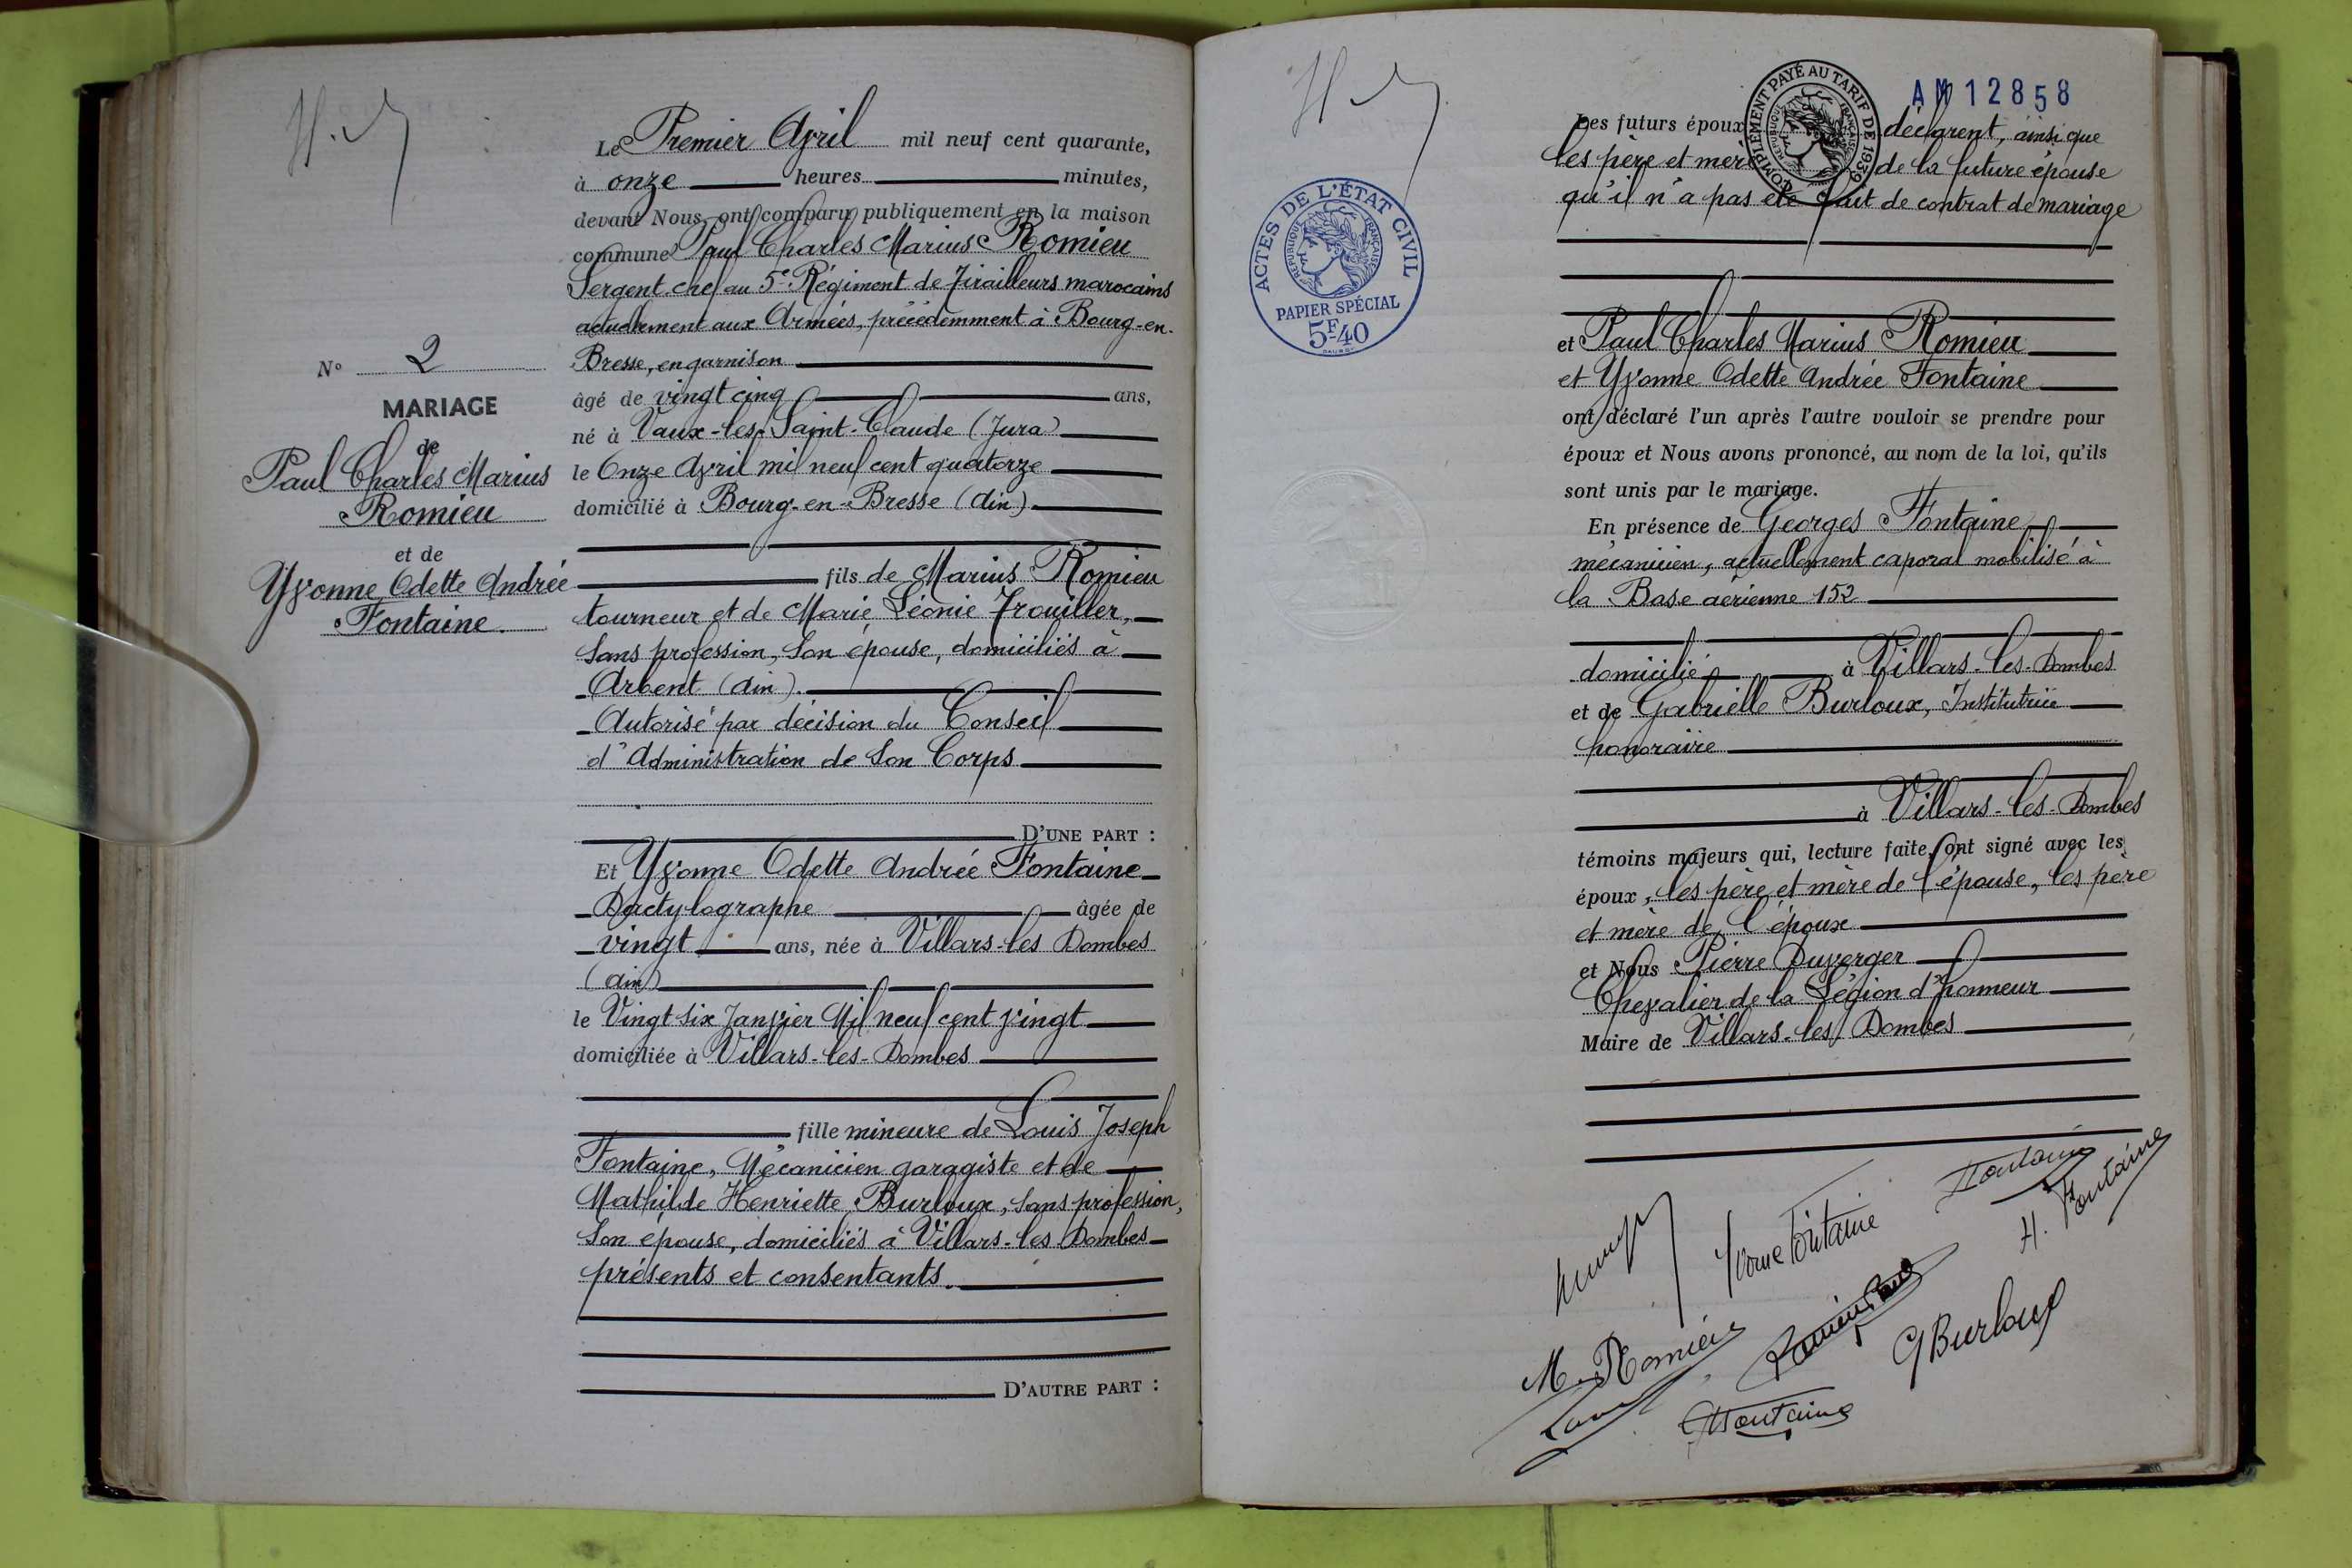 H.
Le Premier Avril mil neuf cent quarante,
à onze heures minutes,
devant Nous, ont comparu publiquement en la maison
commune Paul Charles Marius Romieu
Sergent chef au 5e Régiment de Tirailleurs marocains
actuellement aux Armées, précédemment à Bourg-en-
Bresse, en garnison
âgé de vingt cinq ans,
né à Vaux-les-Saint-Claude (Jura)
le Onze Avril mil neuf cent quatorze
domicilié à Bourg-en-Bresse (Ain)
fils de Marius Romieu
tourneur et de Marie Léonie Trouiller,
sans profession, son épouse, domiciliés à
Arbent (Ain).
Autorisé par décision du Conseil
d'Administration de son Corps
D'UNE PART :
Et Yvonne Odette Andrée Fontaine
Dactylographe âgée de
vingt ans, née à Villars-les Dombes
(Ain)
le Vingt six Janvier Mil neuf cent vingt
domiciliée à Villars-les-Dombes
fille mineure de Louis Joseph
Fontaine, Mécanicien garagiste et de
Mathilde Henriette Burloux, sans profession,
son épouse, domiciliés à Villars-les Dombes
présents et consentants.
D'AUTRE PART :
N° 2
MARIAGE
de
Paul Charles Marius
Romieu
et de
Yvonne Odette Andrée
Fontaine.
H.
ACTES DE L'ÉTAT CIVIL
RÉPUBLIQUE FRANÇAISE
PAPIER SPÉCIAL
5F40
COMPLÉMENT PAYÉ AU TARIF DE 1939
RÉPUBLIQUE FRANÇAISE
AM 12858
Les futurs époux déclarent, ainsi que
les père et mère de la future épouse
qu'il n'a pas été fait de contrat de mariage
et Paul Charles Marius Romieu
et Yvonne Odette Andrée Fontaine
ont déclaré l'un après l'autre vouloir se prendre pour
époux et Nous avons prononcé, au nom de la loi, qu'ils
sont unis par le mariage.
En présence de Georges Fontaine
mécanicien, actuellement caporal mobilisé à
la Base aérienne 152
domicilié à Villars-les-Dombes
et de Gabrielle Burloux, Institutrice
honoraire
à Villars-les-Dombes
témoins majeurs qui, lecture faite, ont signé avec les
époux, les père et mère de l'épouse, les père
et mère de l'époux
et Nous Pierre Duverger
Chevalier de la Légion d'honneur
Maire de Villars-les Dombes
Fontaine
Yvonne Fontaine
H. Fontaine
M. Romieu
Romieu Paul
G Burloux
G Fontaine